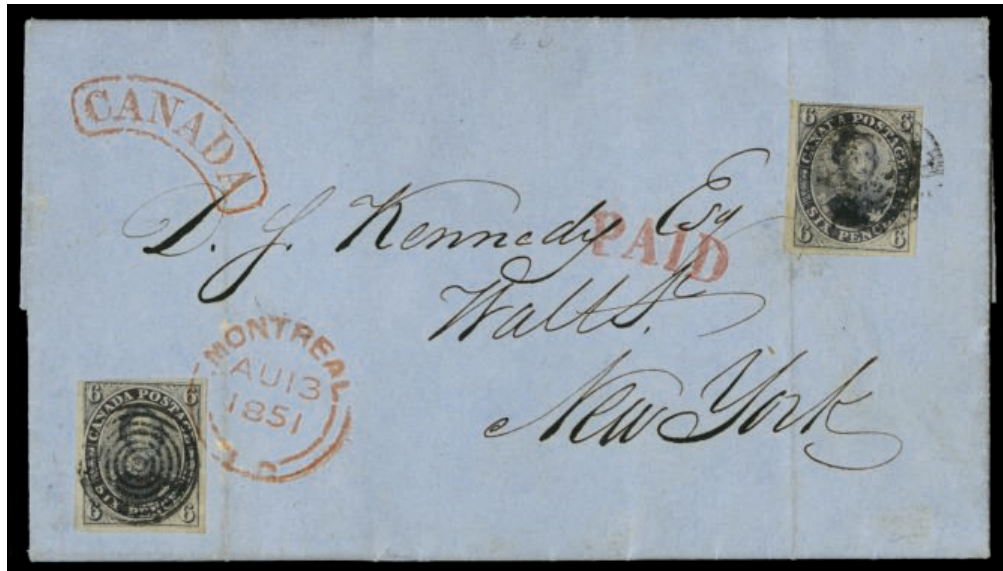 CANADA
6 6
CANADA POSTAGE
SIX PENCE
6 6
D. J. Kennedy Esq
PAID
Wall St.
New York
MONTREAL
AU 13
1851
L.C
6 6
CANADA POSTAGE
SIX PENCE
6 6